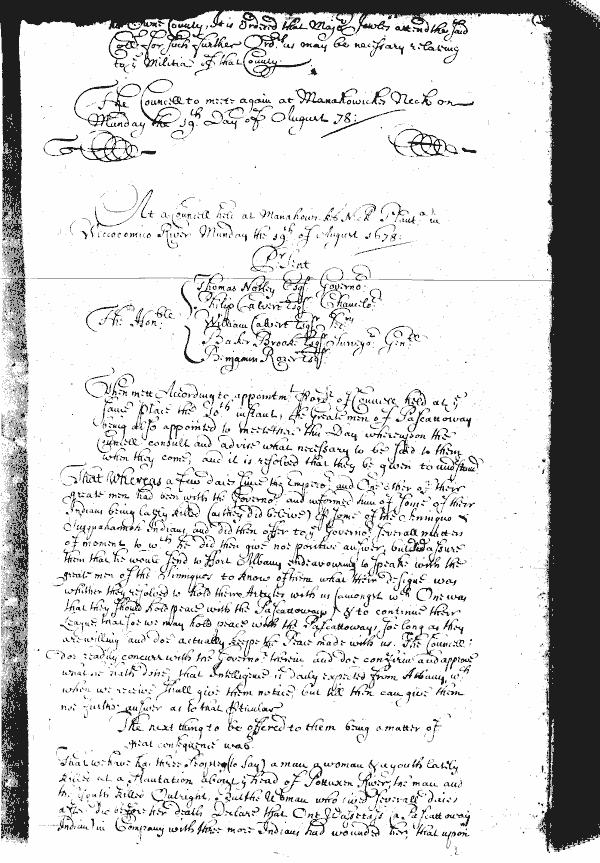 the same County, It is Ordered that Majr Jowles attend the said
Coll for such further Ordrs as may be necessary relating
to ye Militia of that County.
The Councell to meete again at Manahowicks Neck on
Munday the 19th Day of August 78:
At a Councell held at Manahowicks Neck in
Wiccocomico River Munday the 19th of August 1678:
Present
The Honble
Thomas Notley Esqr Governor
Philip Calvert Esqr Chancelor
William Calvert Esqr
Baker Brooke Esqr Surveyor Genll
Benjamin Rozer Esqr
Then mett According to appointmt of Councell held at ye
same place the 10th instant, the Great men of Pascattoway
being also appointed to meete there this Day whereupon the
Councell consult and advise what necessary to be said to them
when they come, and it is resolved that they be given to undstand
That Whereas a few daies since the Emperor and One other of their
greate men had been with the Governor and informed him of some of their
Indians being lately killed (as they did believe) by some of the Sinniquo &
Susquehannoh Indians, and did then offer to ye Governor severall matters
of moment to wch he did then give noe positive answer, but did assure
them that he would send to Fort Albany endeavouring to speake with the
great men of the Sinniques to know of them what their designe was
whither they resolved to hold their Articles with us (amongst wch One was
that they should hold peace with the Pascattoways) & to continue their
League that soe we may hold peace with the Pascattoways soe long as they
are willing and doe actually keepe the Peace made with us. The Councell
doe readily concurr with the Governor therein and doe confirm and approve
what he hath done, that intelligence is daily expected from Albany, wch
when we receive shall give them notice, but till then can give them
noe further answer as to that pticular
The next thing to be offered to them being a matter of
great consequence was
That we have three People (to say) a man a woman & a youth lately
killed at a Plantation about ye head of Potuxen River, the man and
the Youth killed Outright, but the Woman who lived severall daies
after Did before her death Declare that One a Pascattoway
Indian in Company with three more Indians had wounded her, that upon